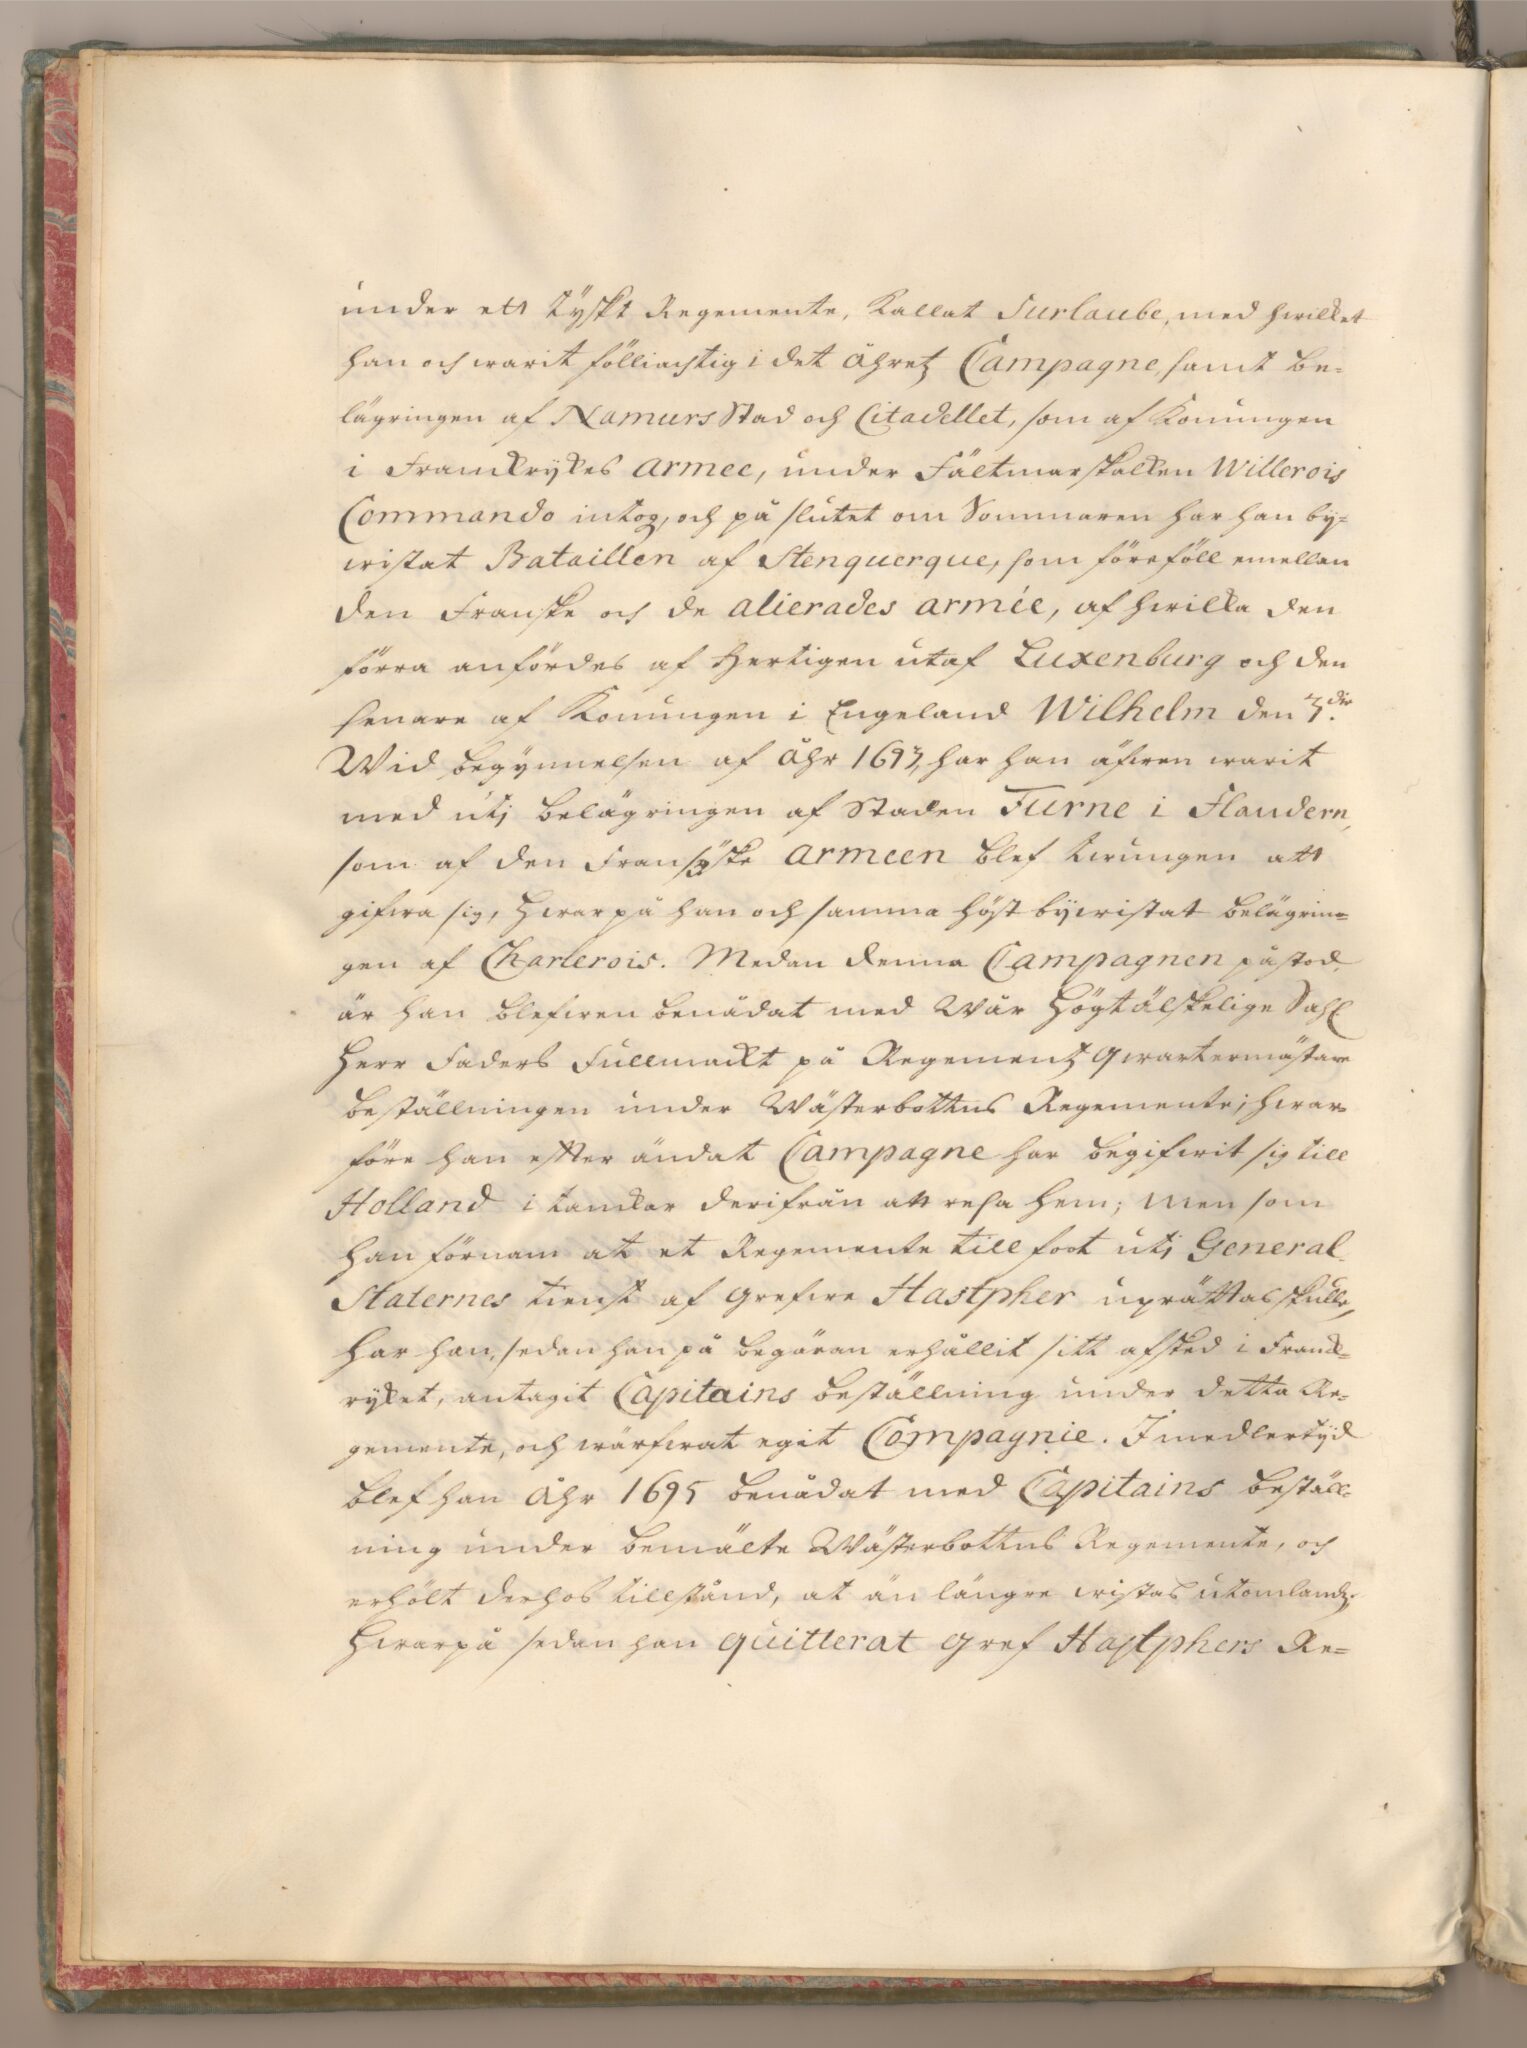 under ett tyskt Regemente, kallat Surlaube, med hwilcket
han och warit fölliachtig i det åhretz Campagne, samt be=
lägringen af Namurs Stad och Citadellet, som af Konungen
i Franckrykes armee, under Fältmarskalcken Willerois
Commando intog, och på slutet om Sommaren har han by=
wistat Bataillen af Stenquerque, som föreföll emellan
den Franske och de alierades armée, af hwilka den
förra anfördes af Hertigen utaf Luxenburg och den
senare af Konungen i Engeland Wilhelm den 3.die
Wid begynnelsen af åhr 1693, har han äfwen warit
med utj belägringen af Staden Furne i Flandern,
som af den Fransyske armeen blef twungen att
gifwa sig, hwarpå han och samma höst bywistat belägrin=
gen af Charlerois. Medan denna Campagnen påstod,
är han blefwen benådat med Wår Högtälskelige Sahl
Herr Faders Fullmackt på Regementz Qwartermästare
beställningen under Wästerbottns Regemente; hwar=
före han efter ändat Campagne har begifwit sig till
Holland i tanckar derifrån att resa hem; men som
han förnam at et Regemente till foot utj General
Staternes tienst af Grefwe Hastpher uprättas skulle,
har han, sedan han på begäran erhållit sitt afsked i Franck=
ryket, antagit Capitains beställning under detta Re=
gemente, och wärfwat egit Compagnie. Imedlertyd
blef han åhr 1695 benådat med Capitains beställ=
ning under bemälte Wästerbottns Regemente, och
erhölt derhos tillstånd, at än längre wistas utomlandz.
Hwarpå sedan han quitterat Gref Hastphers Re=